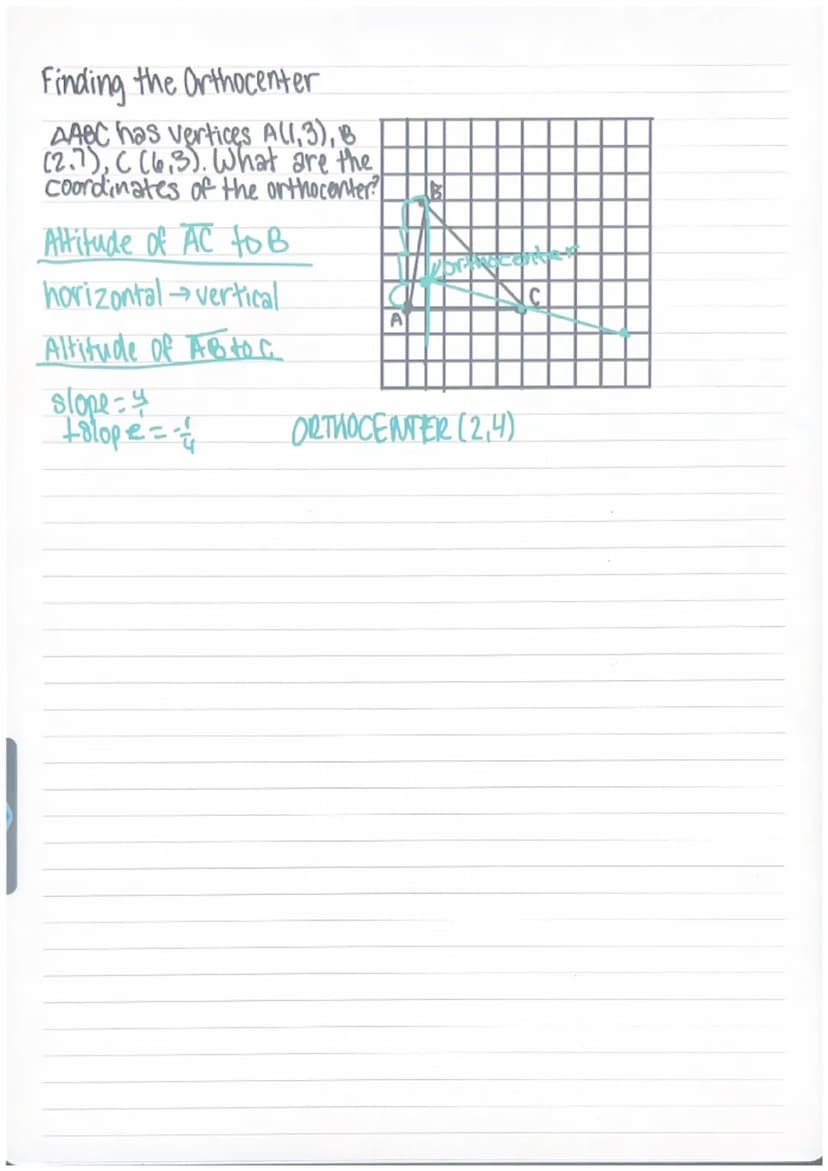 Finding the Orthocenter
△ABC has vertices A(1,3), B
(2,7), C (6,3). What are the
coordinates of the orthocenter?
Altitude of AC to B
horizontal → vertical
Altitude of AB to C
slope = 4/1
⊥slope = -1/4
B
orthocenter
C
A
ORTHOCENTER (2,4)